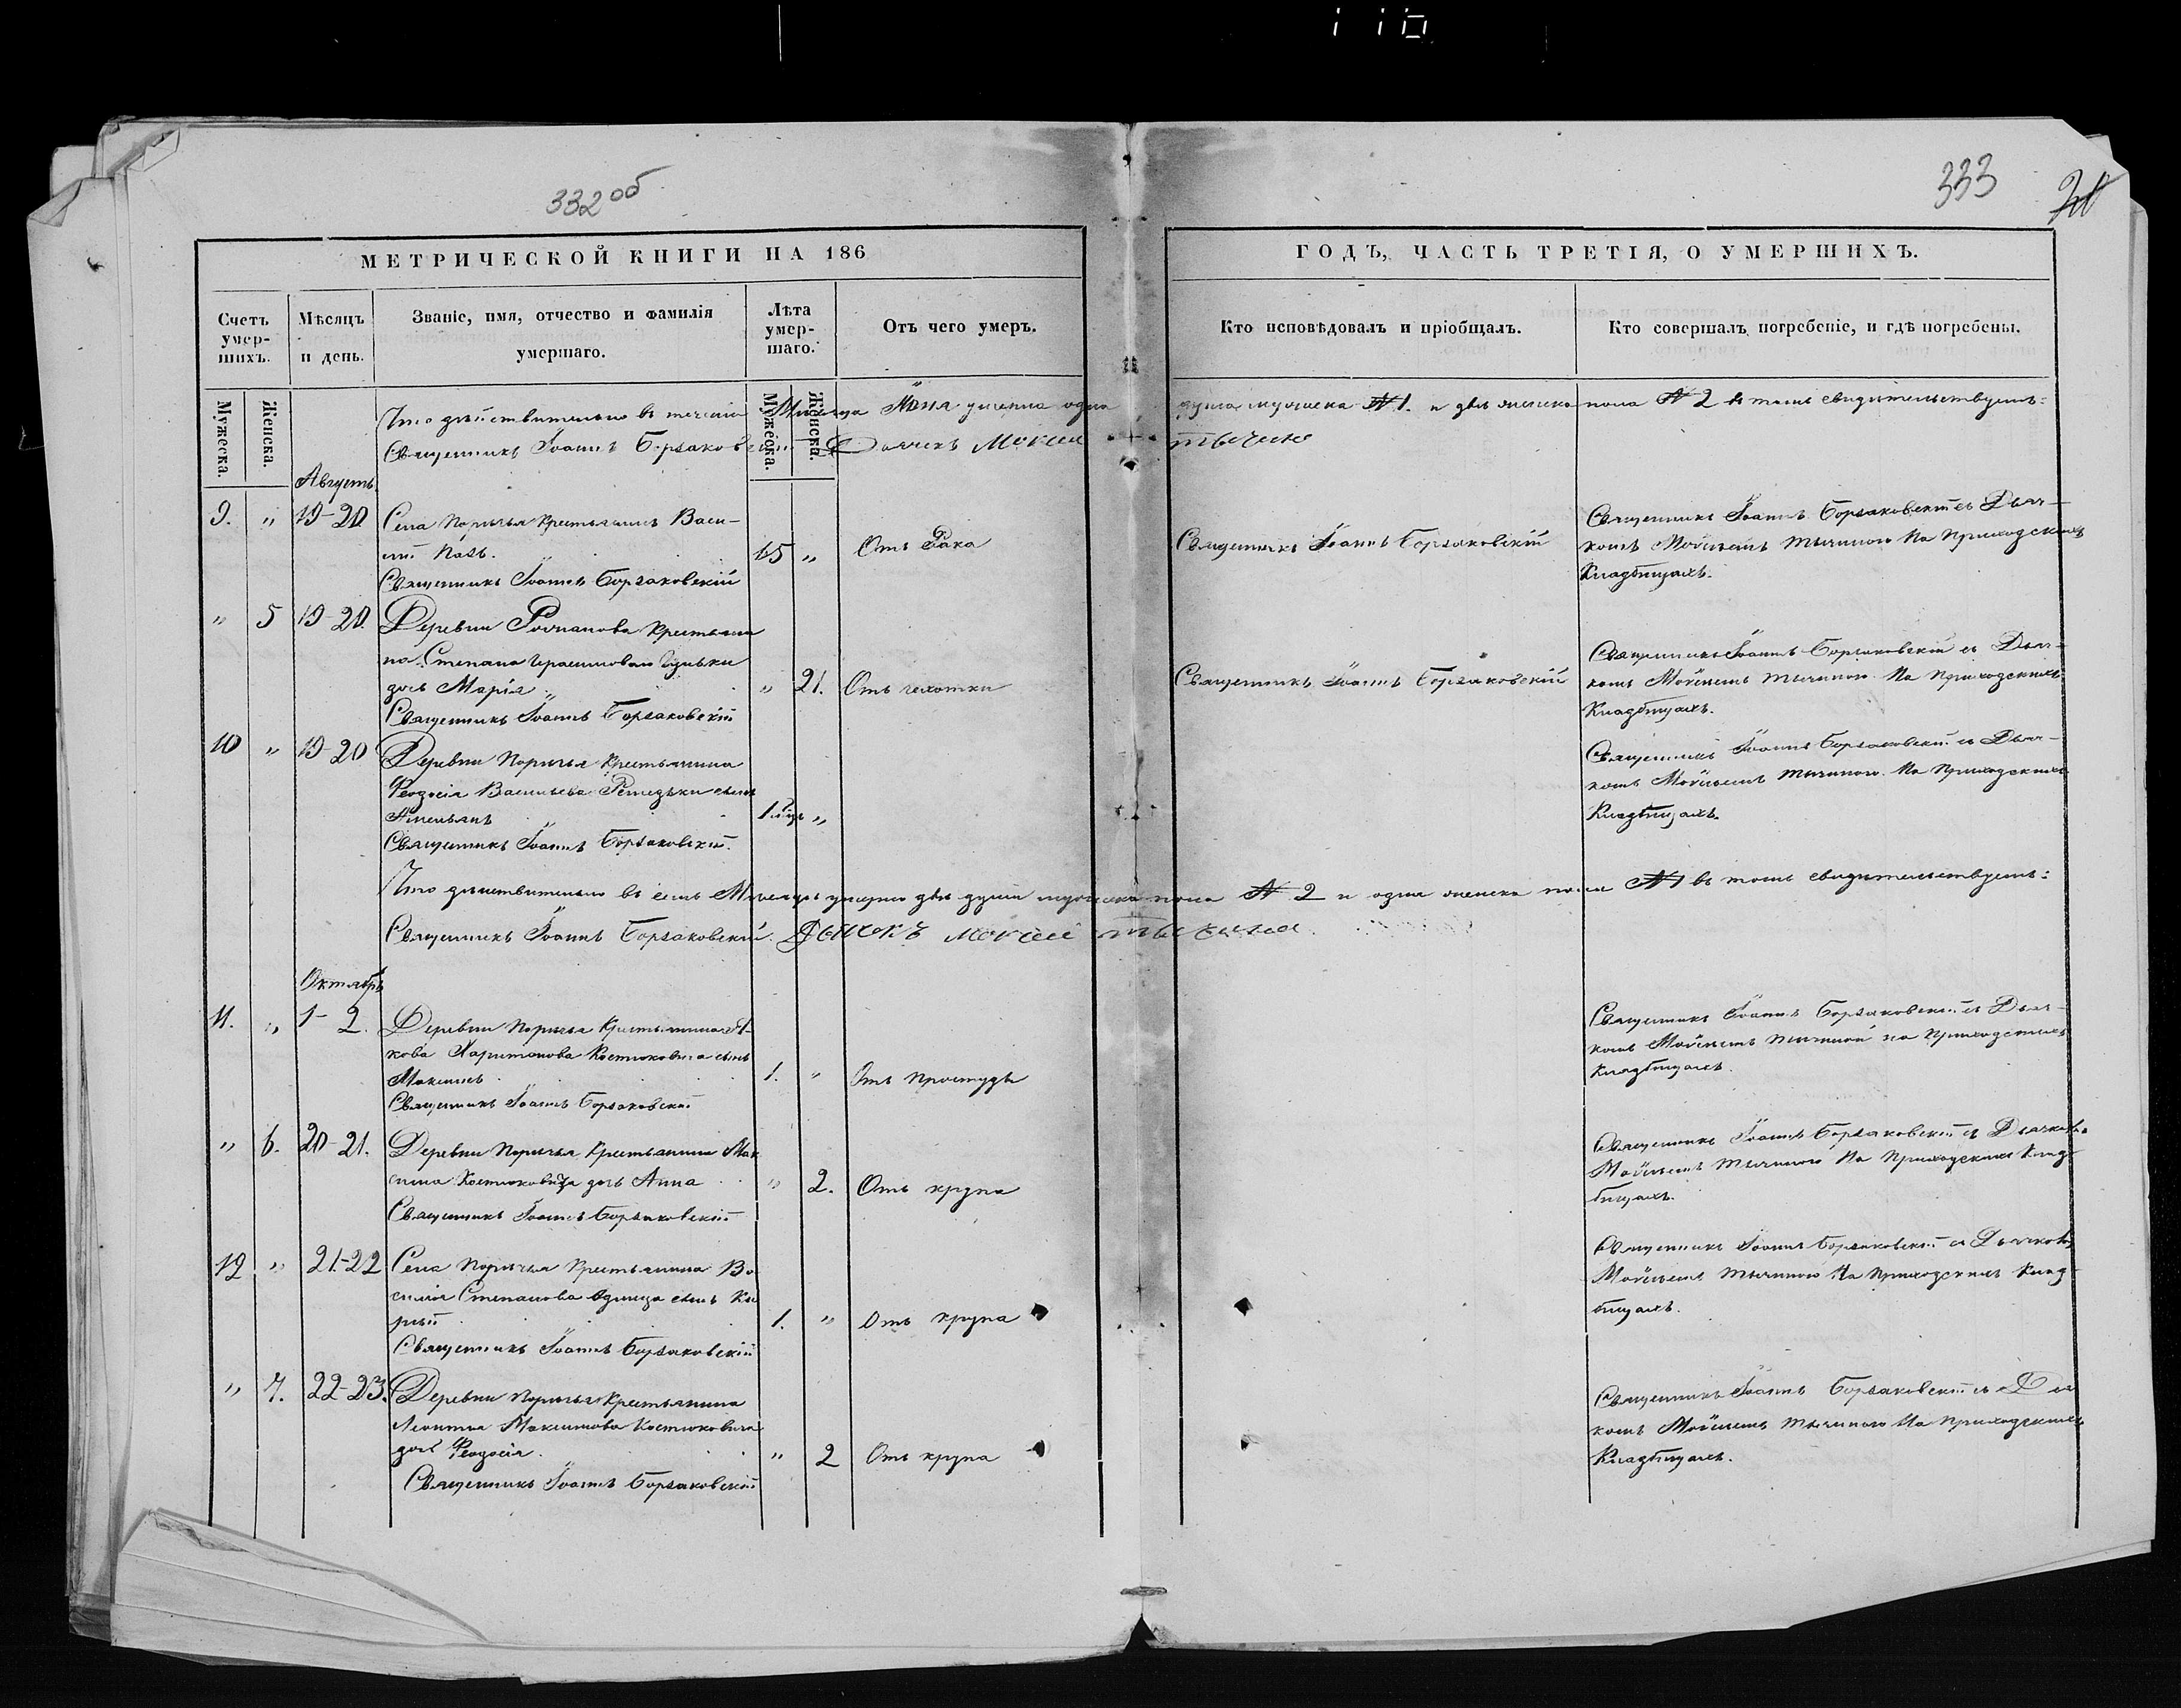 110
332 об
333
МЕТРИЧЕСКОЙ КНИГИ НА 186
ГОДЪ, ЧАСТЬ ТРЕТІЯ, О УМЕРШИХЪ.
Счетъ умер-шихъ.
Мужеска.
Женска.
Мѣсяцъ и день.
Званіе, имя, отчество и фамилія умершаго.
Лѣта умер-шаго.
Мужеска.
Женска.
Отъ чего умеръ.
Кто исповѣдовалъ и пріобщалъ.
Кто совершалъ погребеніе, и гдѣ погребены.
Что дѣйствительно въ теченіи Мѣсяца умерла одна душа мужеска №1. и двѣ женска пола №2 въ томъ свидѣтельствуемъ:
Священникъ Іоаннъ Борзаковскій Дьячекъ Мокій
Августъ.
9. " 19-20
Села Порѣчья Крестьянинъ Васи-
лій
Священникъ Іоаннъ Борзаковскій
65 "
Отъ Рака
Священникъ Іоаннъ Борзаковскій
Священникъ Іоаннъ Борзаковскій съ Дьяч-
комъ Мокіемъ Тычиною На Приходскихъ
Кладбищахъ.
" 5 19-20.
Деревни Крестьяни
на Степана Герасимова
дочь Марія "
Священникъ Іоаннъ Борзаковскій
" 21.
Отъ чахотки
Священникъ Іоаннъ Борзаковскій
Священникъ Іоаннъ Борзаковскій съ Дьяч-
комъ Мокіемъ Тычиною На Приходскихъ
Кладбищахъ.
10 " 19-20
Деревни Порѣчья Крестьянина
Феодосія Васильева сынъ
Священникъ Іоаннъ Борзаковскій.
"
Священникъ Іоаннъ Борзаковскій съ Дьяч-
комъ Мокіемъ Тычиною На Приходскихъ
Кладбищахъ.
Что дѣйствительно въ семъ Мѣсяцѣ умерло двѣ души мужеска пола № 2 и одна женска пола №1 въ томъ свидѣтельствуемъ:
Священникъ Іоаннъ Борзаковскій. Дьячекъ Мокій Тычина
Октябрь
11. " 1-2.
Деревни Порѣчья Крестьянина Я-
кова Харитонова Костюковича сынъ
Максимъ
Священникъ Іоаннъ Борзаковскій
1. "
Отъ простуды
Священникъ Іоаннъ Борзаковскій съ Дьяч-
комъ Мокіемъ Тычиной на Приходскихъ
Кладбищахъ.
" 6. 20-21.
Деревни Порѣчья Крестьянина Мак
сима Костюковича дочь Анна
Священникъ Іоаннъ Борзаковскій
" 2.
Отъ крупа
Священникъ Іоаннъ Борзаковскій съ Дьячкомъ
Мокіемъ Тычиною На Приходскихъ Клад-
бищахъ.
12 " 21-22
Села Порѣчья Крестьянина Ва
силія Степанова сынъ Ки
рилъ
Священникъ Іоаннъ Борзаковскій
1. "
Отъ крупа
Священникъ Іоаннъ Борзаковскій съ Дьячкомъ
Мокіемъ Тычиною На Приходскихъ Клад-
бищахъ.
" 7. 22-23.
Деревни Порѣчья Крестьянина
Леонтія Максимова Костюковича
дочь Феодосія.
Священникъ Іоаннъ Борзаковскій
" 2
Отъ крупа
Священникъ Іоаннъ Борзаковскій съ Дья
комъ Мокіемъ Тычиною На Приходскихъ
Кладбищахъ.